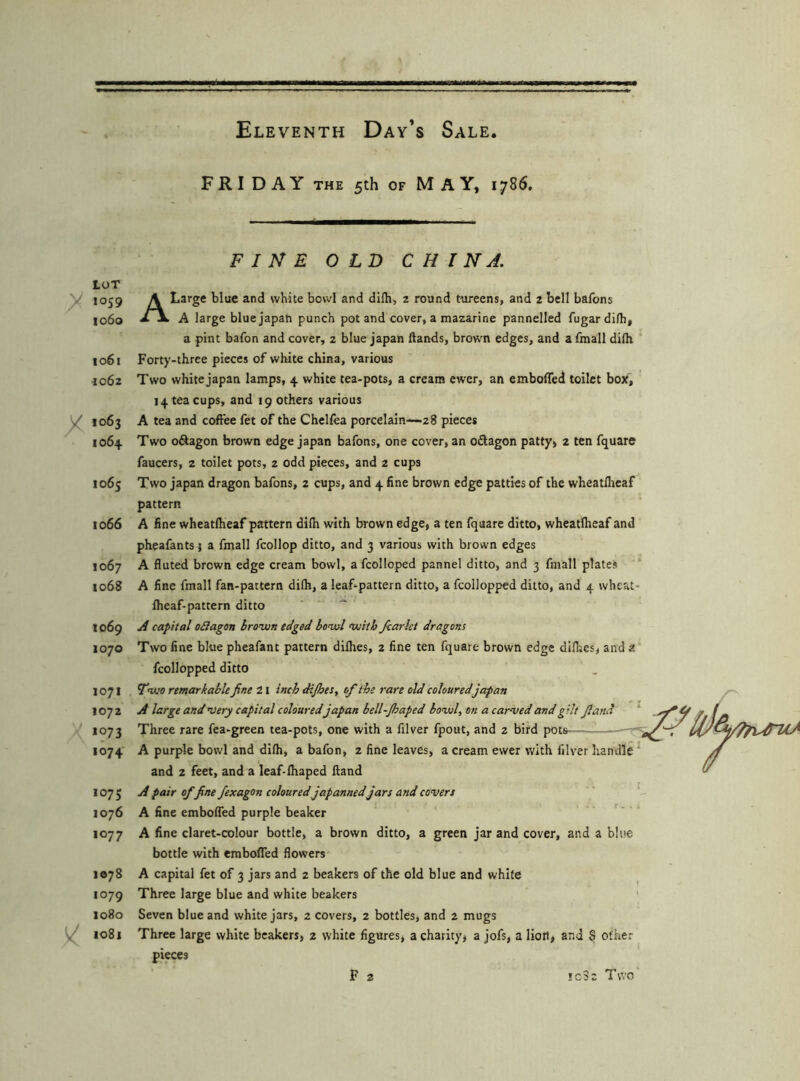 Eleventh Day's Sale.
FRIDAY THE 5th OF MAY, 1786.
FINE OLD CHINA.
LOT
1059 A Large blue and white bowl and diſh, 2 round tureens, and 2 bell baſons
1060 A large blue japan punch pot and cover, a mazarine pannelled ſugar diſh,
a pint baſon and cover, 2 blue japan ſtands, brown edges, and a ſmall diſh
1061 Forty-three pieces of white china, various
1062 Two white japan lamps, 4 white tea-pots, a cream ewer, an emboſſed toilet box,
14 tea cups, and 19 others various
1063 A tea and coffee ſet of the Chelſea porcelain—28 pieces
1064 Two octagon brown edge japan baſons, one cover, an octagon patty, 2 ten ſquare
ſaucers, 2 toilet pots, 2 odd pieces, and 2 cups
1065 Two japan dragon baſons, 2 cups, and 4 fine brown edge patties of the wheatſheaf
pattern
1066 A fine wheatſheaf pattern diſh with brown edge, a ten ſquare ditto, wheatſheaf and
pheaſants; a ſmall ſcollop ditto, and 3 various with brown edges
1067 A fluted brown edge cream bowl, a ſcolloped pannel ditto, and 3 ſmall plates
1068 A fine ſmall fan-pattern diſh, a leaf-pattern ditto, a ſcollopped ditto, and 4 wheat-
ſheaf-pattern ditto
1069 A capital octagon brown edged bowl with ſcarlet dragons
1070 Two fine blue pheaſant pattern diſhes, 2 fine ten ſquare brown edge diſhes, and a
ſcollopped ditto
1071 Two remarkable fine 21 inch diſhes, of the rare old coloured japan
1072 A large and very capital coloured japan bell-ſhaped bowl, on a carved and gilt ſtand
1073 Three rare ſea-green tea-pots, one with a ſilver ſpout, and 2 bird pots
1074 A purple bowl and diſh, a baſon, 2 fine leaves, a cream ewer with ſilver handle
and 2 feet, and a leaf-ſhaped ſtand
1075 A pair of fine ſexagon coloured japanned jars and covers
1076 A fine emboſſed purple beaker
1077 A fine claret-colour bottle, a brown ditto, a green jar and cover, and a blue
bottle with emboſſed flowers
1078 A capital ſet of 3 jars and 2 beakers of the old blue and white
1079 Three large blue and white beakers
1080 Seven blue and white jars, 2 covers, 2 bottles, and 2 mugs
1081 Three large white beakers, 2 white figures, a charity, a joſs, a lion, and 8 other
pieces
F 2 1082 Two